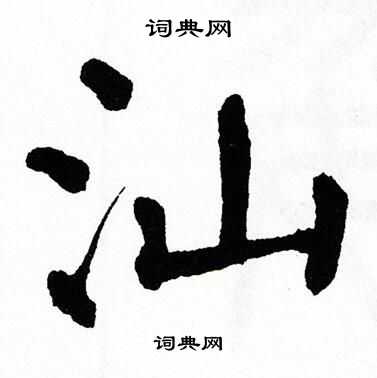 词典网
汕
词典网